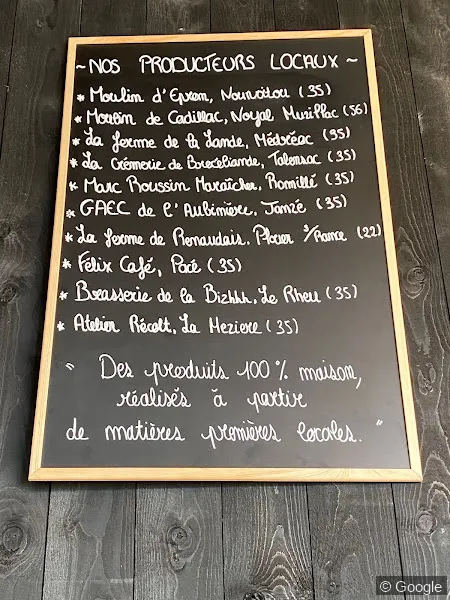 ~ NOS PRODUCTEURS LOCAUX ~
* Moulin d'Epron, Nouvoitou (35)
* Moulin de Cadillac, Noyal Muzillac (56)
* La ferme de la Lande, Médréac (35)
* La Crémerie de Broceliande, Talensac (35)
* Marc Roussin Maraîcher, Romillé (35)
* GAEC de l'Aubinière, Janzé (35)
* La ferme de Renaudais, Plouer s/Rance (22)
* Félix Café, Pacé (35)
* Brasserie de la Bizhhh, Le Rheu (35)
* Atelier Récolt, La Meziere (35)
" Des produits 100% maison,
réalisés à partir
de matières premières locales. "
© Google